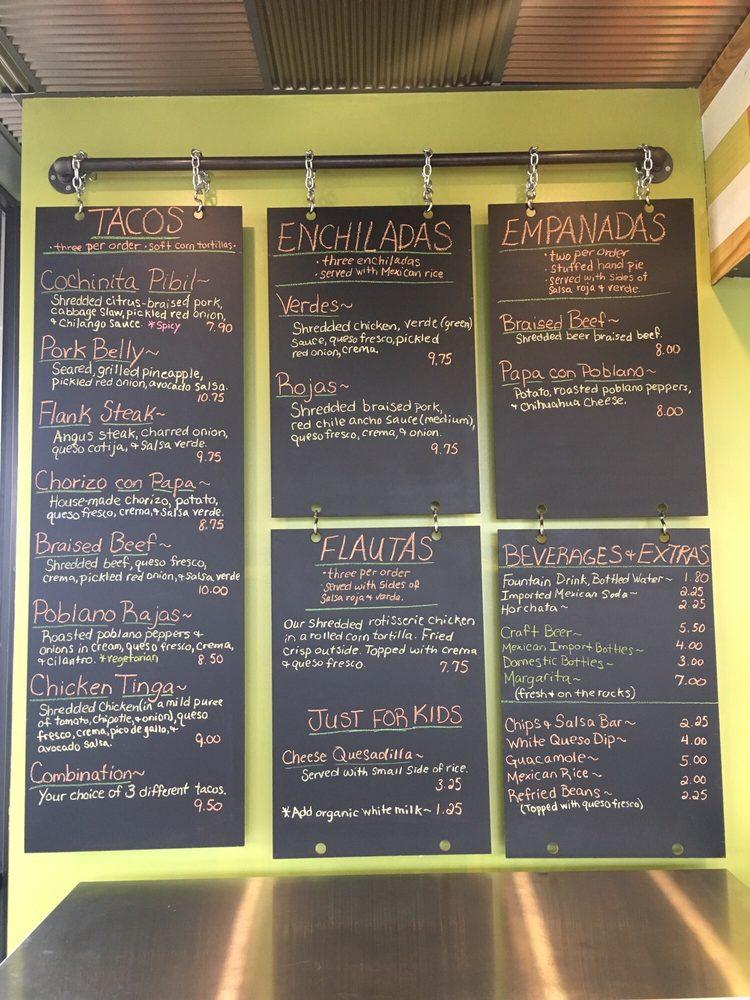 TACOS
·three per order·soft corn tortillas·
Cochinita Pibil~
Shredded citrus-braised pork,
cabbage slaw, pickled red onion,
& Chilango sauce. *Spicy 7.90
Pork Belly~
Seared, grilled pineapple,
pickled red onion, avocado salsa.
10.75
Flank Steak~
Angus steak, charred onion,
queso cotija, & salsa verde.
9.75
Chorizo con Papa~
House-made chorizo, potato,
queso fresco, crema, & salsa verde.
8.75
Braised Beef~
Shredded beef, queso fresco,
crema, pickled red onion, & salsa verde
10.00
Poblano Rajas~
Roasted poblano peppers &
onions in cream, queso fresco, crema,
& cilantro. *vegetarian 8.50
Chicken Tinga~
Shredded Chicken(in a mild puree
of tomato, chipotle, & onion), queso
fresco, crema, pico de gallo, &
avocado salsa. 9.00
Combination~
Your choice of 3 different tacos.
9.50
ENCHILADAS
·three enchiladas
·served with Mexican rice
Verdes~
Shredded chicken, verde (green)
sauce, queso fresco, pickled
red onion, crema.
9.75
Rojas~
Shredded braised pork,
red chile ancho sauce (medium),
queso fresco, crema, & onion.
9.75
FLAUTAS
·three per order
·served with sides of
salsa roja & verde.
Our shredded rotisserie chicken
in a rolled corn tortilla. Fried
crisp outside. Topped with crema
& queso fresco. 7.75
JUST FOR KIDS
Cheese Quesadilla~
Served with small side of rice.
3.25
*Add organic white milk~ 1.25
EMPANADAS
·two per order
·stuffed hand pie
·served with sides of
salsa roja & verde.
Braised Beef~
Shredded beer braised beef.
8.00
Papa con Poblano~
Potato, roasted poblano peppers,
& Chihuahua cheese.
8.00
BEVERAGES & EXTRAS
Fountain Drink, Bottled Water~ 1.80
Imported Mexican Soda~ 2.25
Horchata~ 2.25
Craft Beer~ 5.50
Mexican Import Bottles~ 4.00
Domestic Bottles~ 3.00
Margarita~ 7.00
(fresh & on the rocks)
Chips & Salsa Bar~ 2.25
White Queso Dip~ 4.00
Guacamole~ 5.00
Mexican Rice~ 2.00
Refried Beans~ 2.25
(Topped with queso fresco)